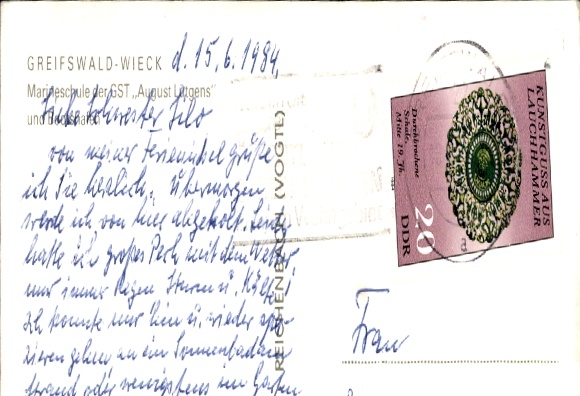 GREIFSWALD-WIECK d. 15.6.1984
Marineschule der GST „August Lütgens"
und Bootshafen
Liebe Schwester Lilo
von meiner Ferieninsel grüße
ich Sie herzlich. Übermorgen
werde ich von hier abgeholt. Leider
hatte ich großes Pech mit dem Wetter
nur immer Regen Sturm u. Kälte!
Ich konnte nur hin u. wieder spa-
zieren gehen an ein Sonnenbad am
Strand oder wenigstens im Garten
REICHENBACH (VOGTL)
KUNSTGUSS AUS
LAUCHHAMMER
Durchbrochene
Schale,
Mitte 19. Jh.
20
DDR
a
Frau